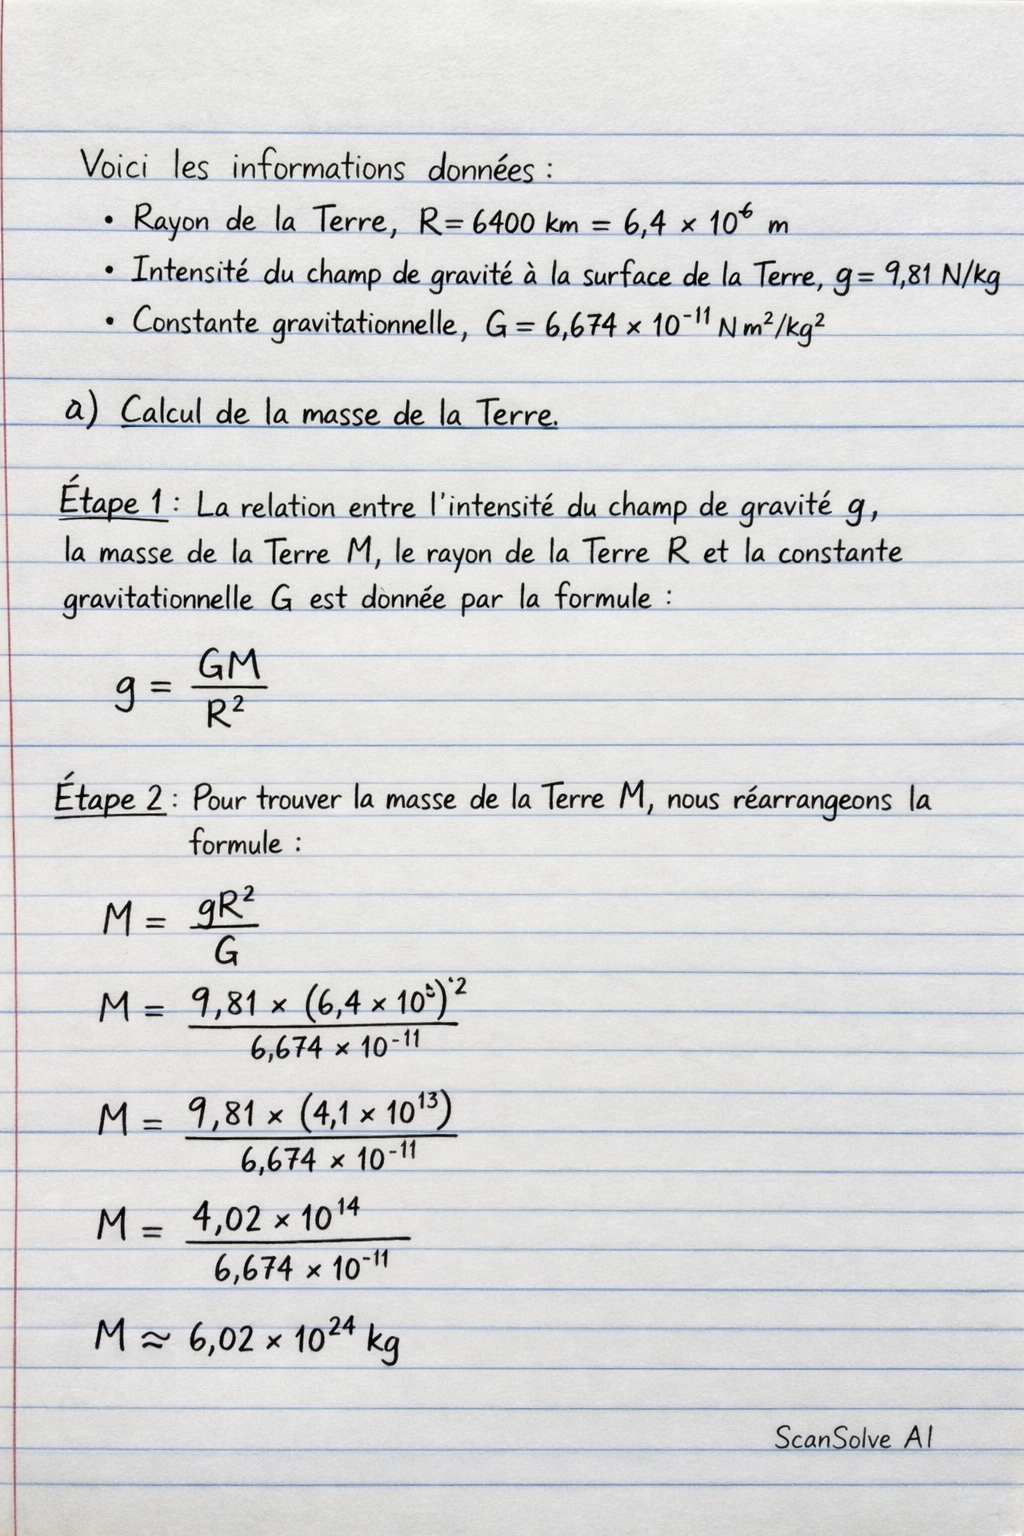 Voici les informations données :
• Rayon de la Terre, R = 6400 km = 6,4 × 10⁶ m
• Intensité du champ de gravité à la surface de la Terre, g = 9,81 N/kg
• Constante gravitationnelle, G = 6,674 × 10⁻¹¹ N m²/kg²
a) Calcul de la masse de la Terre.
Étape 1 : La relation entre l'intensité du champ de gravité g,
la masse de la Terre M, le rayon de la Terre R et la constante
gravitationnelle G est donnée par la formule :
g = GM / R²
Étape 2 : Pour trouver la masse de la Terre M, nous réarrangeons la
formule :
M = gR² / G
M = 9,81 × (6,4 × 10)² / 6,674 × 10⁻¹¹
M = 9,81 × (4,1 × 10¹³) / 6,674 × 10⁻¹¹
M = 4,02 × 10¹⁴ / 6,674 × 10⁻¹¹
M ≈ 6,02 × 10²⁴ kg
ScanSolve AI